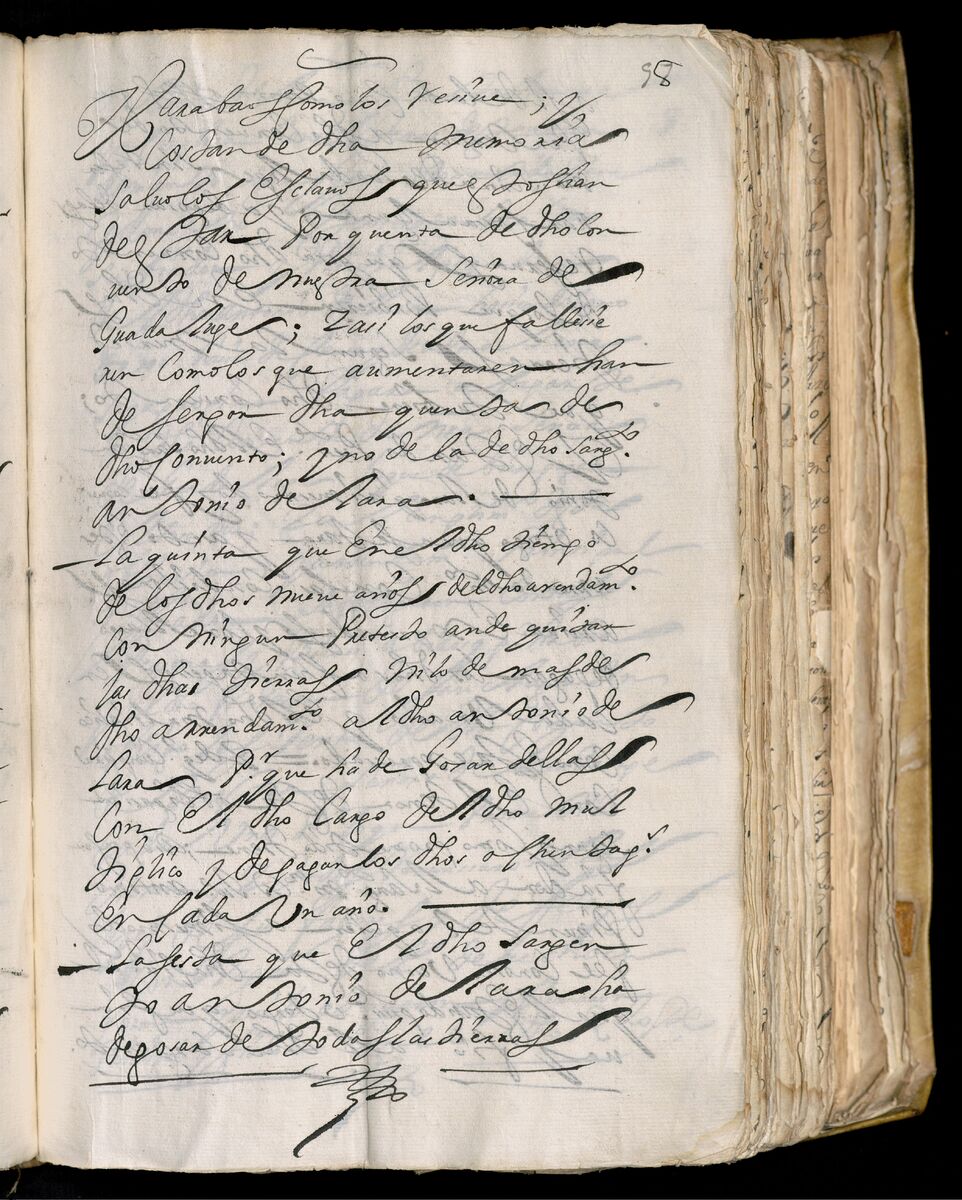 98
Rara bar Como los resiue; y
Costan de dha memoria
saluo los Esclauos que estos han
de estar Por quenta de dho Con
uento de nuestra Señora de
Guadalupe; y asi los que fallesie
ren Como los que aumentaren han
de ser por dha quenta de
dho Conuento; y no de la de dho sargto.
antonio de lara.
La quinta que En el dho tiempo
de los dhos nueue años del dho arrendamto.
Con ningun Pretesto an de quitar
las dhas tierras ni lo de mas de
dho arrendamto. al dho antonio de
Lara Pr que ha de Gosar dellas
Con El dho Cargo del dho mul
tiplico y de pagar los dhos ochentags.
En Cada Un año.
La sesta que El dho sargen
to antonio de lara ha
de gosar de todas las tierras